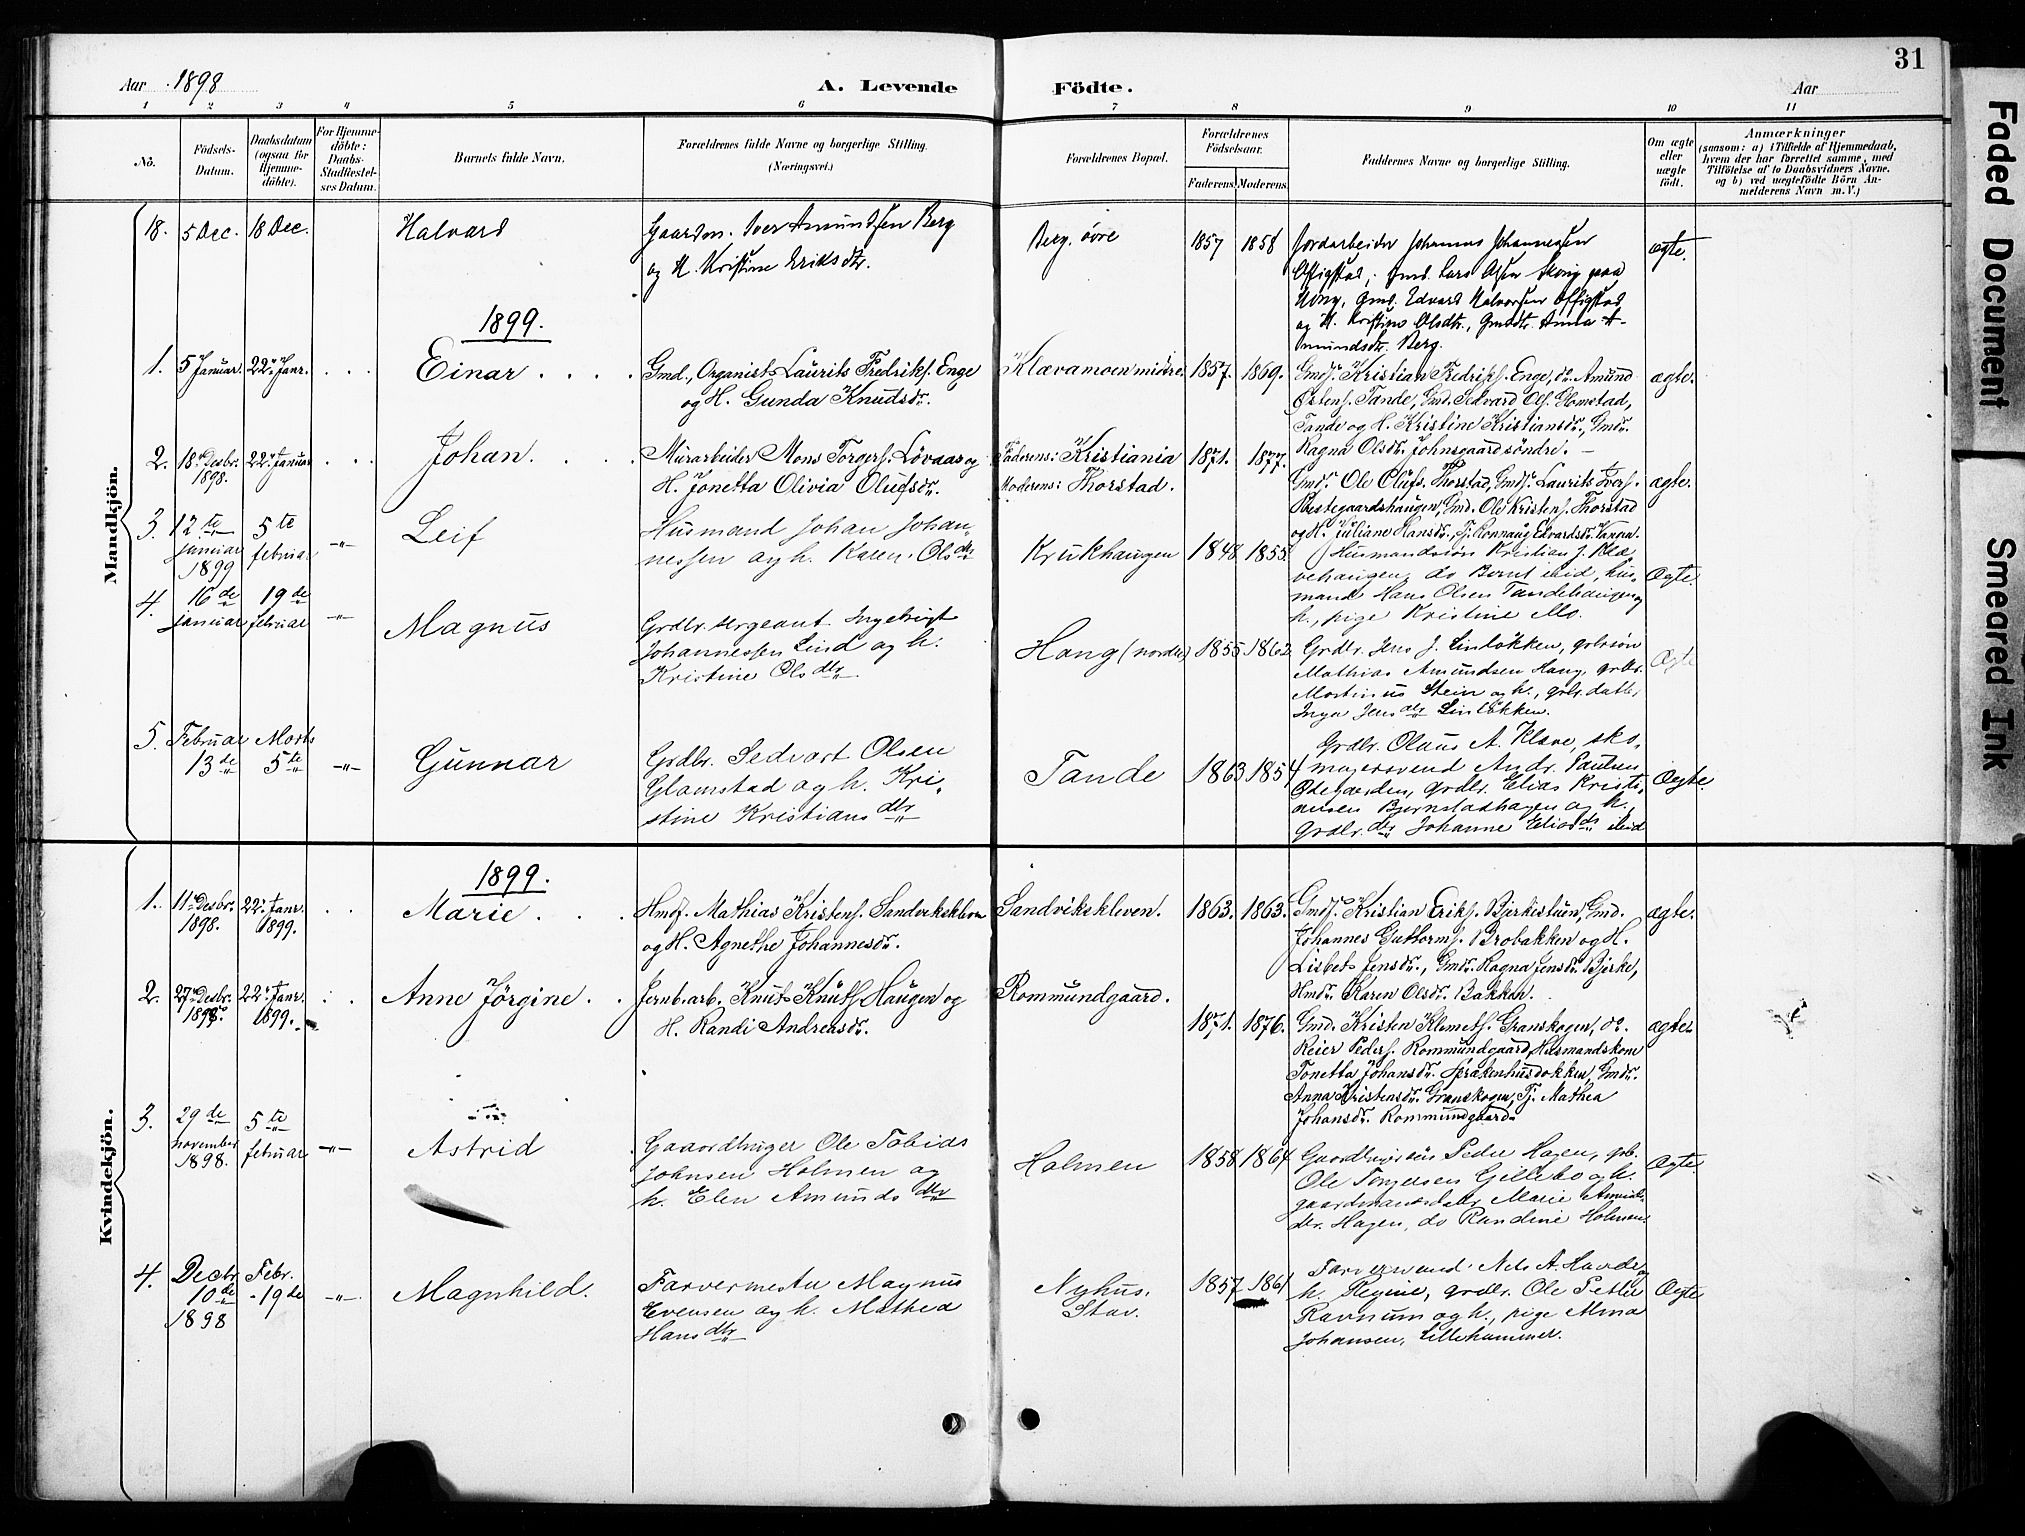 31
Aar 1898
A. Levende Födte.
Aar
1 2 3 4 5 6 7 8 9 10 11
No.
Födsels-Datum.
Daabsdatum (ogsaa for Hjemme-döbte).
For Hjemme-döbte: Daabs-Stadfæstel-ses Datum.
Barnets fulde Navn.
Forældrenes fulde Navne og borgerlige Stilling.
(Næringsvei.)
Forældrenes Bopæl.
Forældrenes Födselsaar.
Faderens. Moderens.
Faddernes Navne og borgerlige Stilling.
Om ægte eller uægte født.
Anmærkninger
(saasom: a) i Tilfælde af Hjemmedaab,
hvem der har forrettet samme, med
Tilföielse af to Daabsvidners Navne.
og b) ved uægtefödte Börn An-
melderens Navn m. V.)
Mandkjön.
18. 5 Dec. 18 Dec. Halvard
Gaardm. Iver Amundsen Berg
og H. Kristine Eriksdtr.
Berg, øvre 1857 1858
Jordarbeider Johannes Johannessen
og H. Kristine Olsdtr., Gmdtr. Anna A-
mundsdtr. Berg.
ægte.
1899.
1. 5 Januar. 22. Janr. Einar
Gmd., Organist Laurits Fredriks. Enge
og H. Gunda Knudsdr.
Klævamoen midre. 1857. 1869.
Gmds. Kristian Fredriks. Enge, do. Amund
Østens. Tande, Gmd. Sedvard Ols. Glomstad,
Tande og H. Kristine Kristiansdr., Gmdr.
Ragna Olsdr. Johnsgaard söndre.
ægte.
2. 18. Desbr. 1898. 22. Januar Johan.
Murarbeider Mons Torgers. Lövaas og
H. Jonetta Olivia Olufsdr.
Faderens: Kristiania
Moderens: Thorstad.
1871. 1877.
Gmds. Ole Olufs. Thorstad, Gmds. Laurits Ivers.
Prestegaardshaugen, Gmd. Ole Kristens. Thorstad
og H. Juliane Hansdr., Tj. Ronnaug Edvardsdr.
ægte.
3. 12te januar 1899 5te februar -"- Leif
Husmand Johan Johan-
nessen og h. Karen Olsdtr
Krukhaugen 1848 1855
Husmandssøn Kristian J. Klæ-
vehaugen, do Bernt ibid, hus-
mand Hans Olsen Tandehaugen og
h., pige Kristine Mo.
Ægte
4. 16de januar 19de februar -"- Magnus
Grdbr. sergeant Ingebrigt
Johannessen Lind og h.
Kristine Olsdtr
Haug (nordre) 1855 1862
Grdbr. Jens J. Linløkken, grbrsøn
Mathias Amundsen Haug, grbr.
Martinus Stein og h., grbr. datter
Inga Jensdtr Linløkken.
Ægte
5. Februar 13de Marts 5te -"- Gunnar
Grdbr. Sedvart Olsen
Glomstad og h. Kri-
stine Kristiansdtr
Tande 1863 1854
Grdbr. Olaus A. Klæve, sko-
magersvend Andr. Paulsen
Ødegaarden, grdbr. Elias Kristi-
ansen Bjørnstadhagen og h.,
grdbr.dtr Johanne Eliasdtr ibid
Ægte.
Kvindekjön.
1899.
1. 11. Desbr. 1898. 22. Janr. 1899. Marie
Hmds. Mathias Kristens. Sandvikskleven
og H. Agnethe Johannesdr.
Sandvikskleven. 1863. 1863.
Gmds. Kristian Eriks. Bjerkestuen, Gmd.
Johannes Guttorms. Brobakken og H.
Lisbet Jensdr., Gmdr. Ragna Jensdr. Bjerke,
Hmdr. Karen Olsdr. Bakken.
ægte.
2. 27. Desbr. 1898. 22. Janr. 1899. Anne Jörgine
Jernb.arb. Knut Knuts. Haugen og
H. Randi Andreasdr.
Rommundgaard.
1871. 1876.
Gmd. Kristen Klemets. Granskogen, do.
Reier Peders. Rommundgaard, Husmandskone
Tonetta Johansdr. Sprækenhusdokken, Gmdr.
Anna Kristensdr. Granskogen, Tj. Mathea
Johansdr. Rommundgaard.
ægte.
3. 29de november 1898. 5te februar -"- Astrid
Gaardbruger Ole Tobias
Johnsen Holmen og
h. Elen Amundsdtr
Holmen 1858 1864
Ole Torgersen Gillebo og h.
gaardmandsdatter Marie Amunds-
dtr. Hagen, do Randine Holmen.
Ægte
4. Decbr 10de 1898 Febr. 19de -"- Magnhild.
Farvermester Magnus
Evensen og h. Mathea
Hansdtr
Nyhus.
Stav.
1857 1861
Farversvend Nels A. Haarde og
h. Regine, grdbr. Ole Petter
Ravnum og h., pige Alma
Johansen, Lillehammer.
Ægte
Faded Document
Smeared Ink